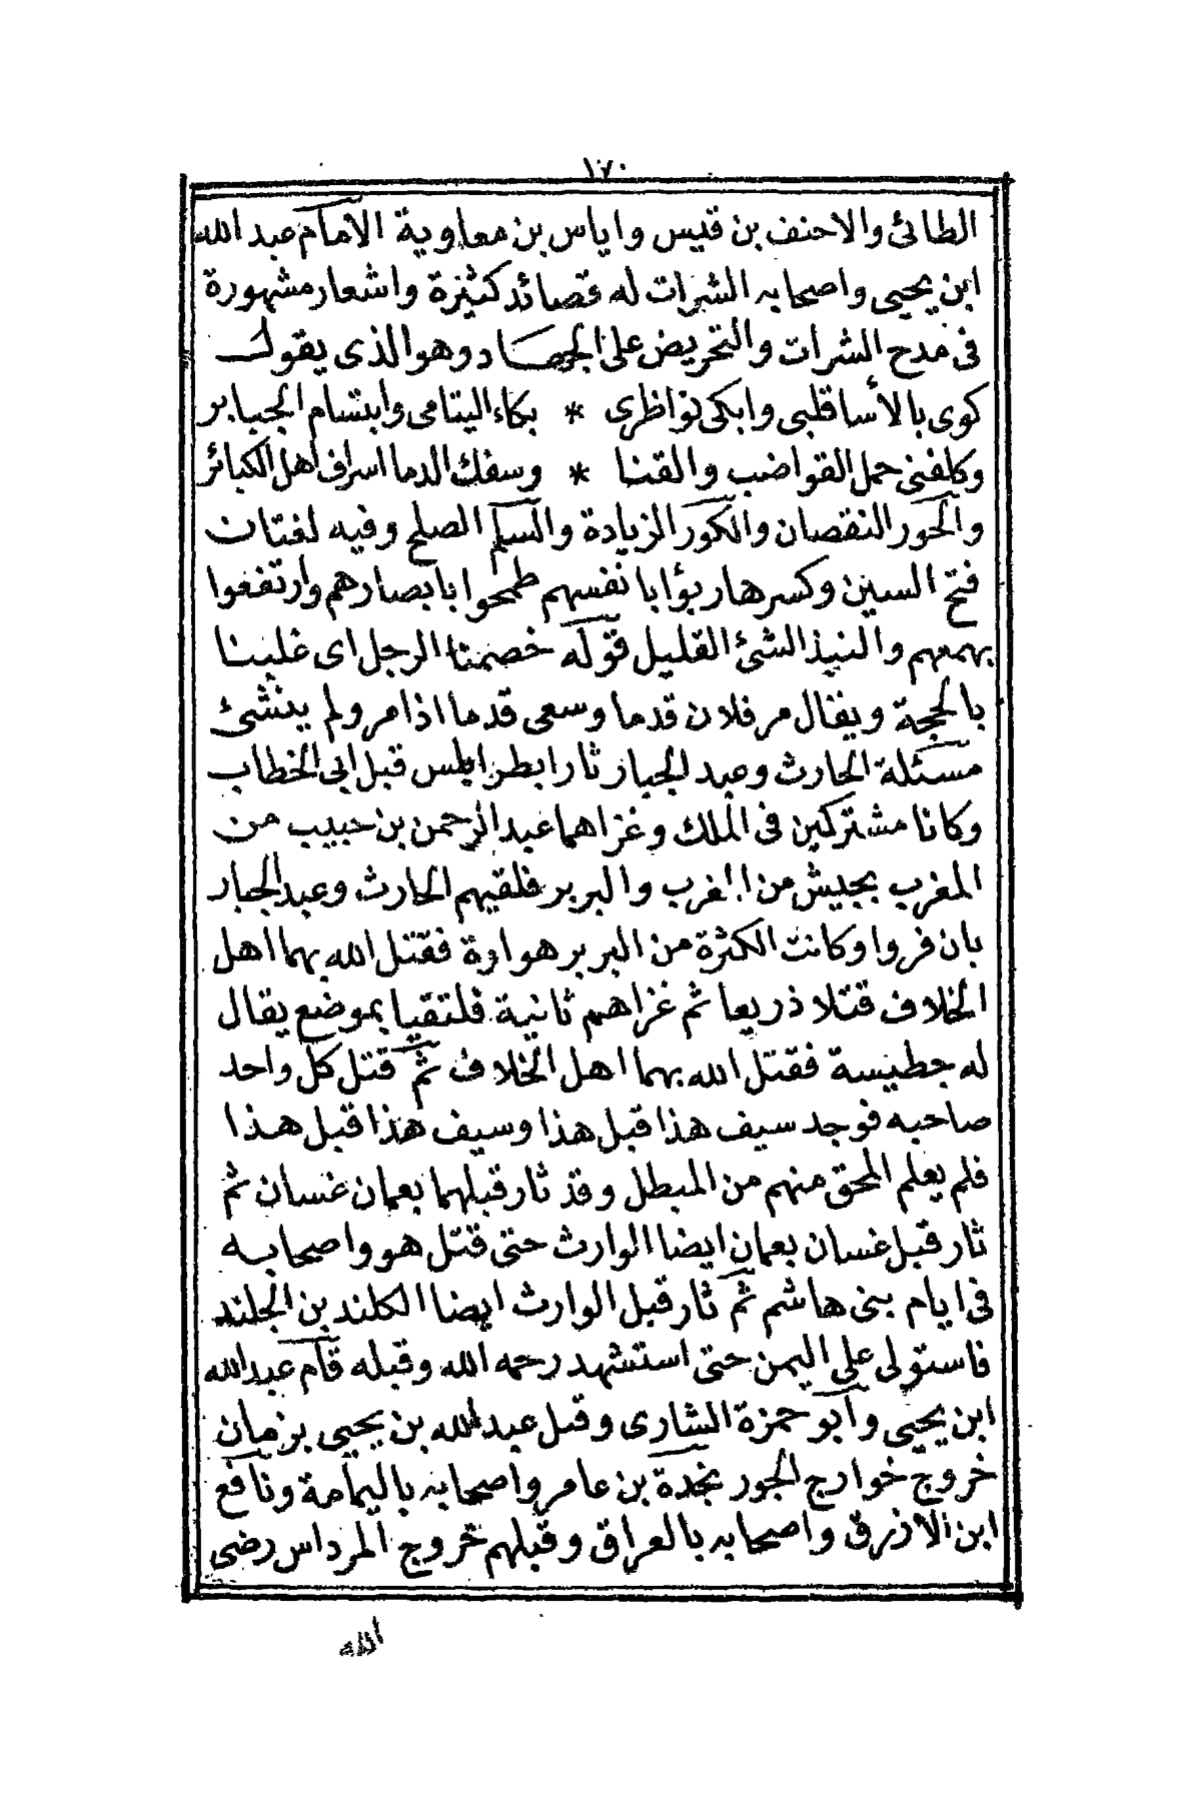 ١٧٠
الطائى والاحنف بن قيس واياس بن معاوية الامام عبدالله
ابن يحيى واصحابه الشرات له قصائد كثيرة واشعار مشهورة
فى مدح الشرات والتحريض على الجهاد وهو الذى يقول
كوى بالأسا قلبى وابكى نواظرى * بكاء اليتامى وابتسام الجبابر
وكلفنى حمل القواضب والقنا * وسفك الدما اسراف اهل الكبائر
والحور النقصان والكور الزيادة والسلم الصلح وفيه لغتان
فتح السين وكسرها ربؤا بانفسهم طمحوا بابصارهم وارتفعوا
بهممهم والنبذ الشئ القليل قوله خصمنا الرجل اى غلبنا
بالحجة ويقال مر فلان قدما وسعى قدما اذا مر ولم ينثنئ
مسئلة الحارث وعبد الجبار ثارا بطرابلس قبل ابى الخطاب
وكانا مشتركين فى الملك وغزاهما عبد الرحمن بن حبيب من
المغرب بجيش من العرب والبربر فلقيهم الحارث وعبد الجبار
بان فروا وكانت الكثرة من البربر هوارة فقتل الله بهما اهل
الخلاف قتلا ذريعا ثم غزاهم ثانية فلتقيا بموضع يقال
له جطيسة فقتل الله بهما اهل الخلاف ثم قتل كل واحد
صاحبه فوجد سيف هذا قبل هذا وسيف هذا قبل هذا
فلم يعلم المحق منهم من المبطل وقد ثار قبلهما بعمان غسان ثم
ثار قبل غسان بعمان ايضا الوارث حتى قتل هو واصحابه
فى ايام بنى هاشم ثم ثار قبل الوارث ايضا الكلند بن الجلند
فاستولى على اليمن حتى استشهد رحمه الله وقبله قام عبدالله
ابن يحيى وابو حمزة الشارى وقبل عبدالله بن يحيى بزمان
خروج خوارج الجور نجدة بن عامر واصحابه باليمامة ونافع
ابن الازرق واصحابه بالعراق وقبلهم خروج المرداس رضى
الله